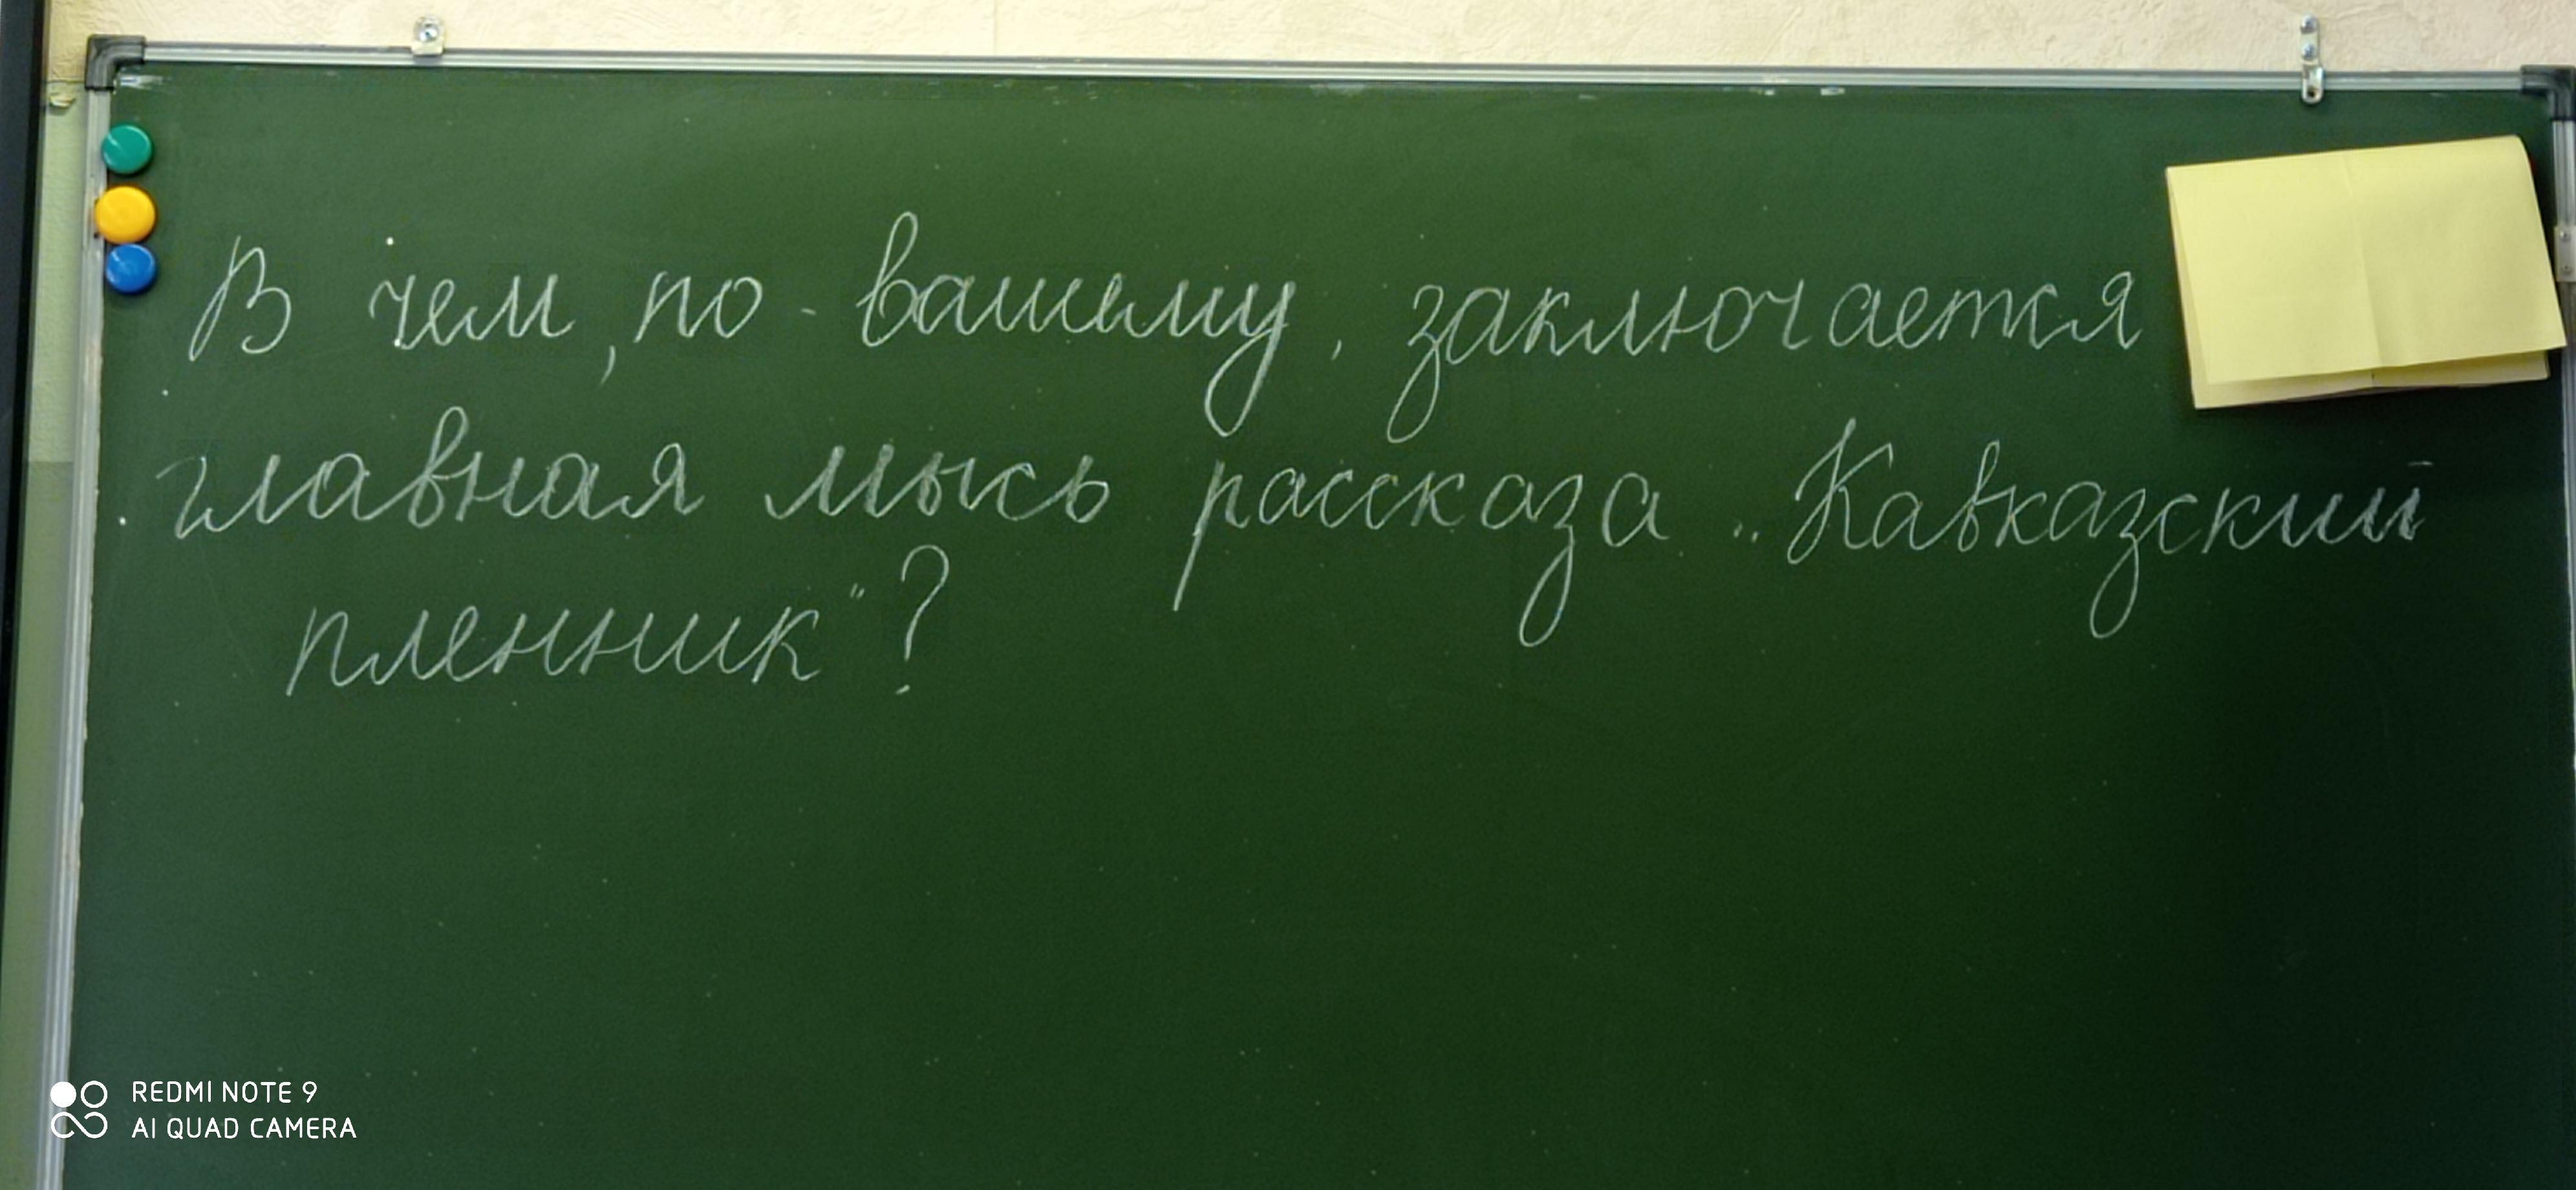 В чем, по-вашему, заключается
главная мысь рассказа „Кавказский
пленник"?
REDMI NOTE 9
AI QUAD CAMERA